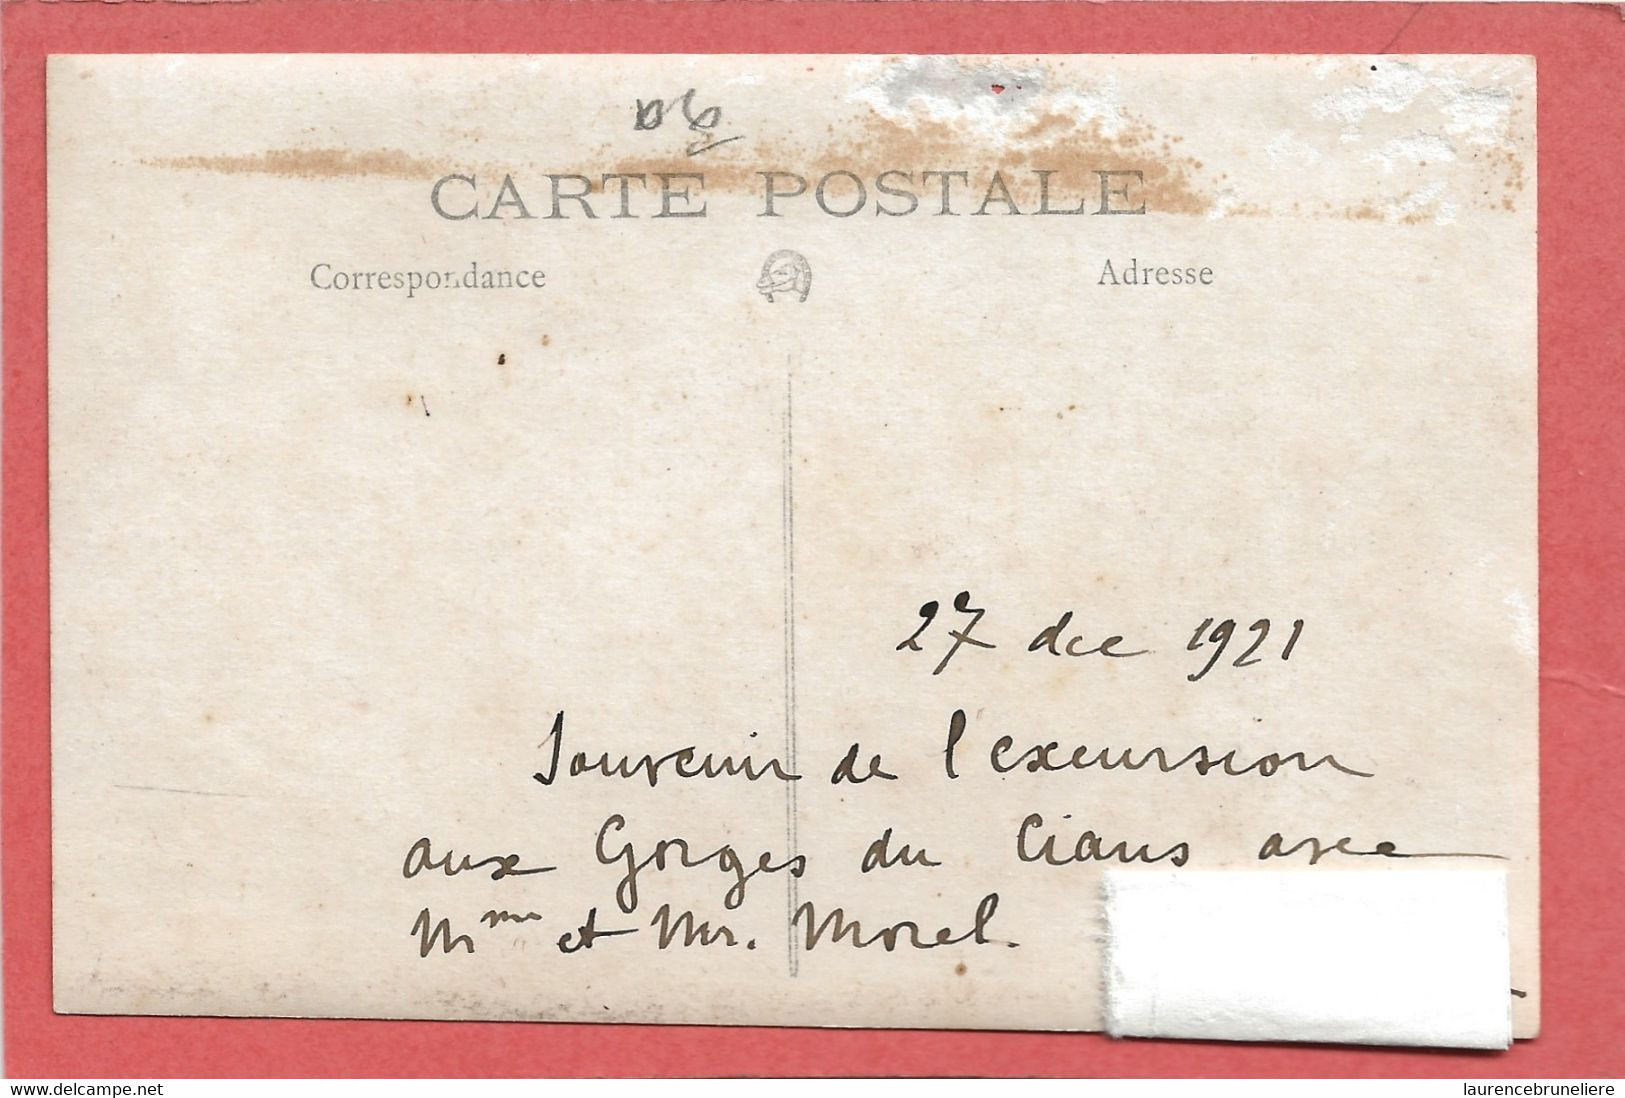 CARTE POSTALE
Correspondance
Adresse
27 dec 1921
Souvenir de l'excursion
aux Gorges du Cians avec
Mme et Mr. Morel.
www.delcampe.net
laurencebruneliere